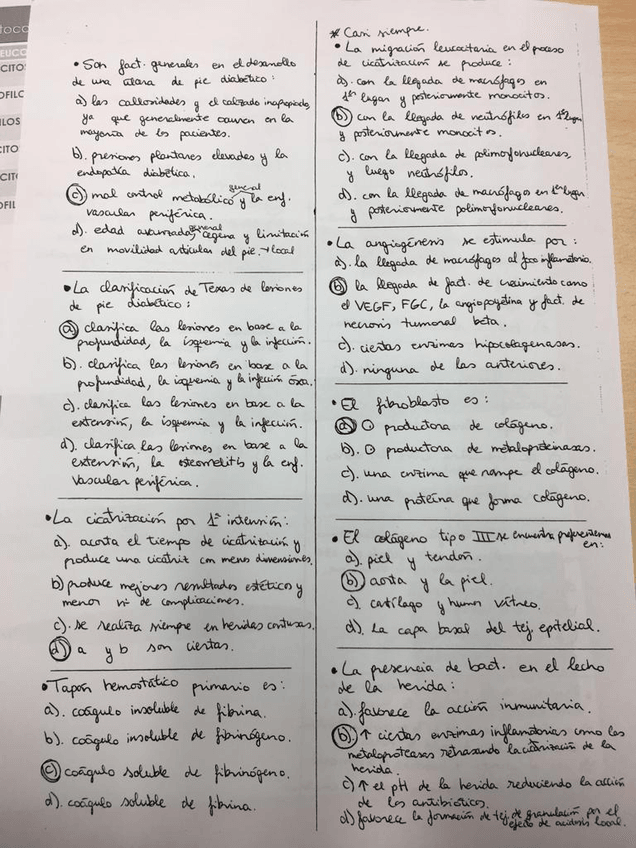 • Son fact. generales en el desarrollo
de una úlcera de pie diabético:
a) las callosidades y el calzado inapropiado,
ya que generalmente causan en la
mayoría de los pacientes.
b). presiones plantares elevadas y la
endopatía diabética.
c) mal control metabólico y la enf.
general
vascular periférica.
d). edad avanzada, ceguera y limitación
general
en movilidad articular del pie. → local
• La clasificación de Texas de lesiones
de pie diabético:
a) clasifica las lesiones en base a la
profundidad, la isquemia y la infección.
b). clasifica las lesiones en base a la
profundidad, la isquemia y la infección ósea.
c). clasifica las lesiones en base a la
extensión, la isquemia y la infección.
d). clasifica las lesiones en base a la
extensión, la osteomelitis y la enf.
vascular periférica.
• La cicatrización por 1ª intensión:
a). acorta el tiempo de cicatrización y
produce una cicatriz con menos dimensiones.
b) produce mejores resultados estéticos y
menor nº de complicaciones.
c). se realiza siempre en heridas contusas.
d) a y b son ciertas.
• Tapón hemostático primario es:
a). coágulo insoluble de fibrina.
b). coágulo insoluble de fibrinógeno.
c) coágulo soluble de fibrinógeno.
d). coágulo soluble de fibrina.
* Casi siempre.
• La migración leucocitaria en el proceso
de cicatrización se produce:
a). con la llegada de macrófagos en
1er lugar y posteriormente monocitos.
b) con la llegada de neutrófilos en 1er lugar
y posteriormente monocitos.
c). con la llegada de polimorfonucleares,
y luego neutrófilos.
d). con la llegada de macrófagos en 1er lugar
y posteriormente polimorfonucleares.
• La angiogénesis se estimula por:
a). la llegada de macrófagos al foco inflamatorio.
b) la llegada de fact. de crecimiento como
el VEGF, FGC, la angiopoyetina y fact. de
necrosis tumoral beta.
c). ciertas enzimas hipocolagenasas.
d). ninguna de las anteriores.
• El fibroblasto es:
a) productora de colágeno.
b). productora de metaloproteinasas.
c). una enzima que rompe el colágeno.
d). una proteína que forma colágeno.
• El colágeno tipo III se encuentra
en:
a). piel y tendón.
b) aorta y la piel.
c). cartílago y humor vítreo.
d). La capa basal del tej. epitelial.
• La presencia de bact. en el lecho
de la herida:
a). favorece la acción inmunitaria.
b) ↑ ciertas enzimas inflamatorias como las
metaloproteasas retrasando la cicatrización de la
herida.
c) ↑ el pH de la herida reduciendo la acción
de los antibióticos.
d) favorece la formación de tej. de granulación por el
efecto de acidosis local.